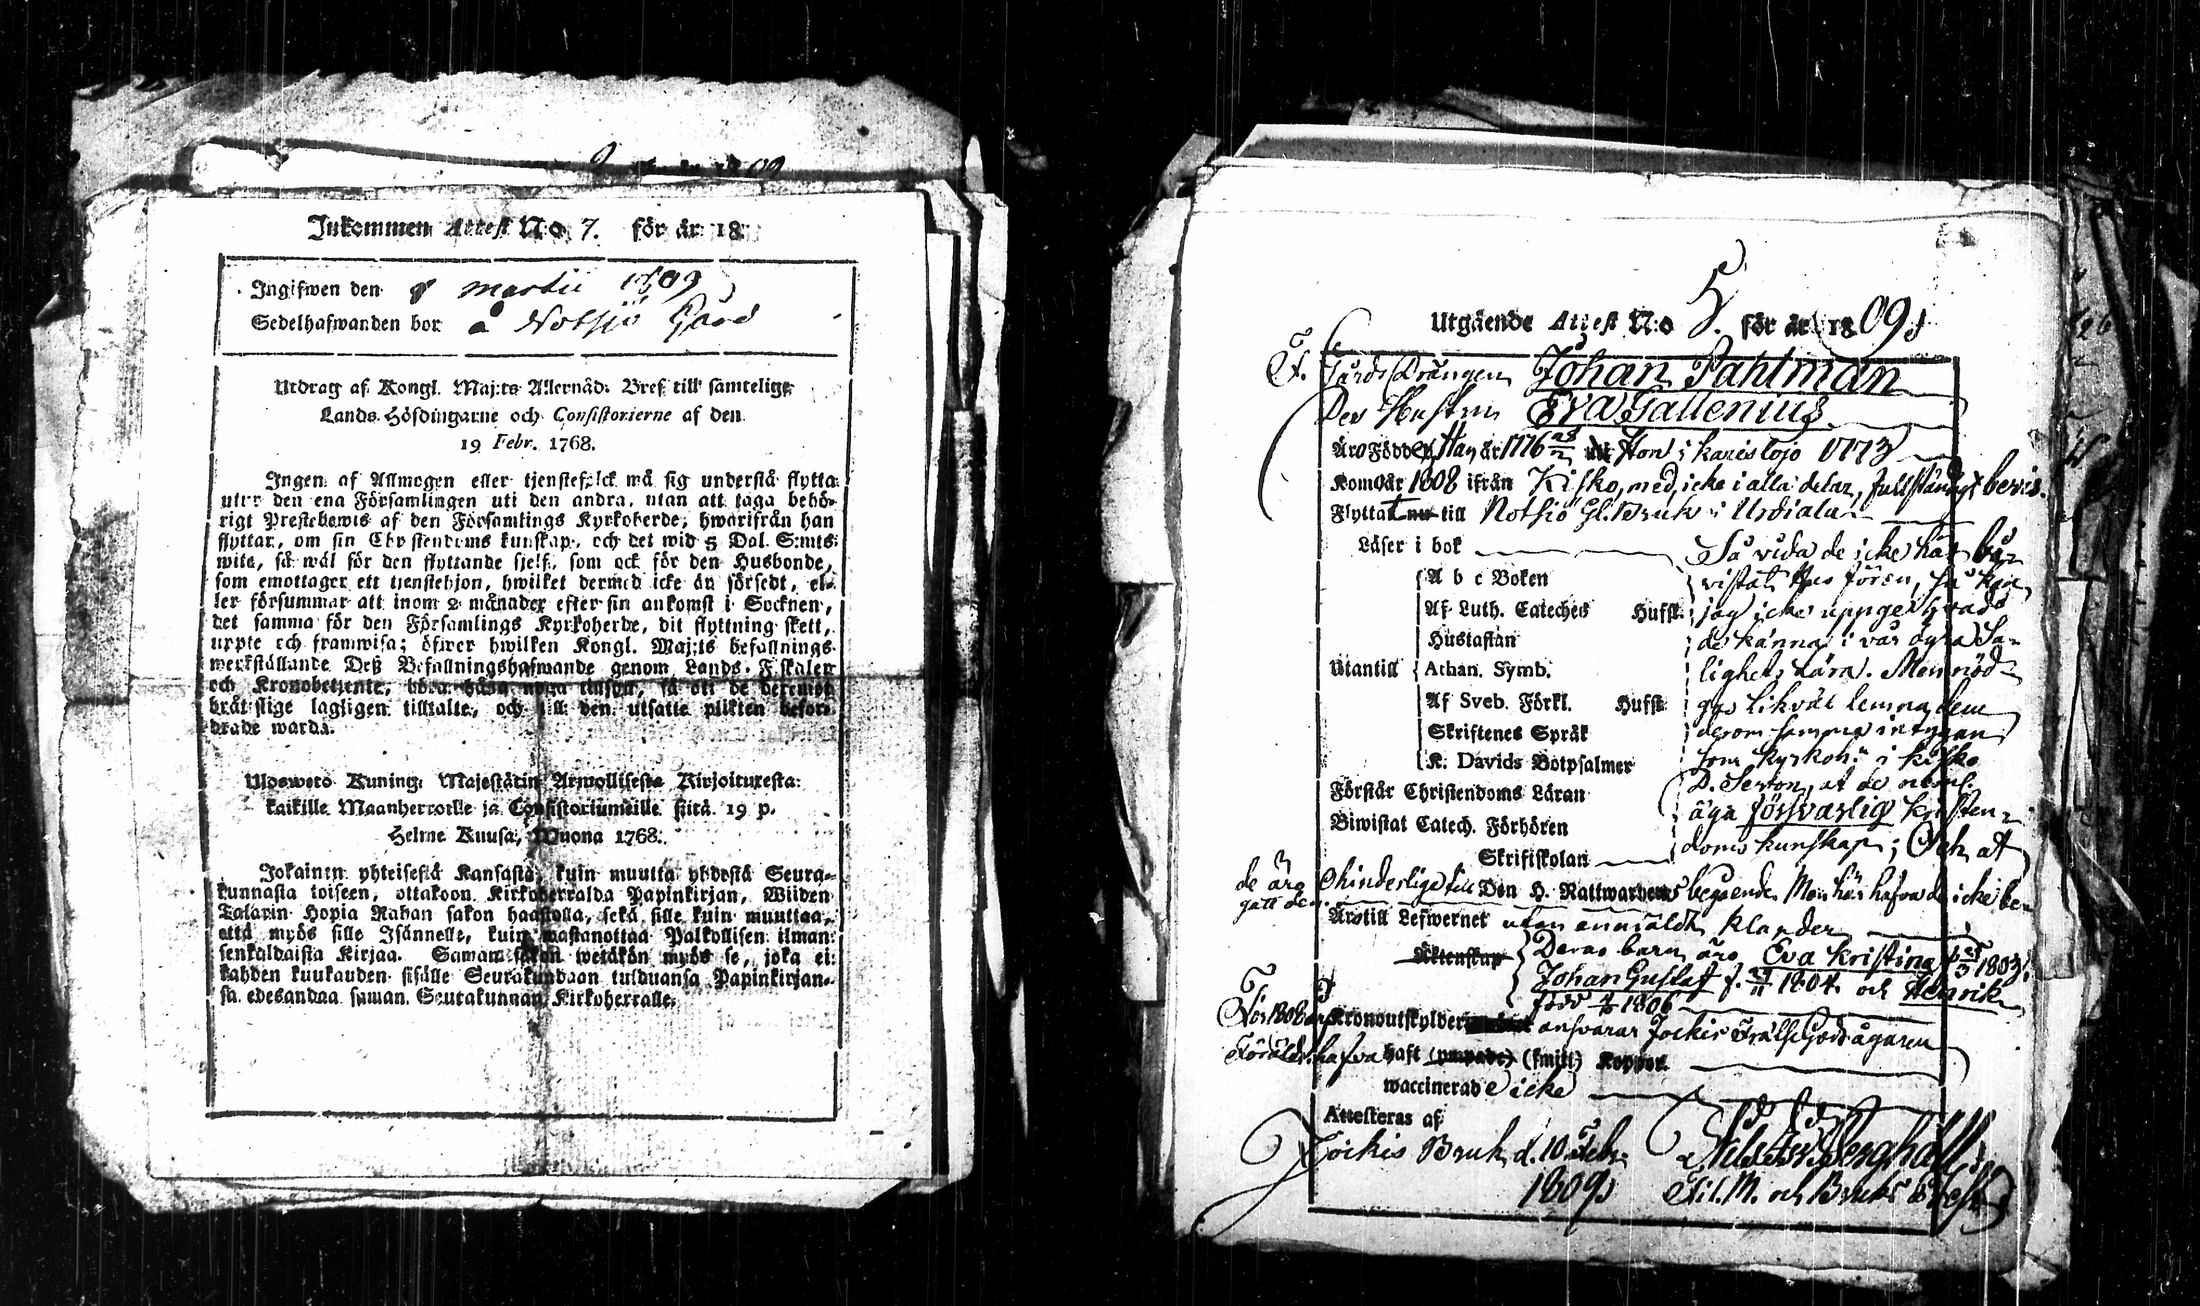 Inkommen Attest N:o 7. för år 18
Ingifwen den 9 martii 1809
Sedelhafwanden bor å Notsjö Gård
Utdrag af Kongl. Maj:ts Allernåd. Bref till samtelige
Lands-Höfdingarne och Consistorierne af den
19 Febr. 1768.
Ingen af Allmogen eller tjenstefolck må sig understå flytta
utur den ena Församlingen uti den andra, utan att taga behö-
rigt Prestebewis af den Församlings Kyrkoherde, hwarifrån han
flyttar, om sin Christendoms kunskap, och det wid 5 Dal. S:mts
wite, så wäl för den flyttande sjelf, som ock för den Husbonde,
som emottager ett tjenstehjon, hwilket dermed icke är försedt, el-
ler försummar att inom 2 månader efter sin ankomst i Socknen,
det samma för den Församlings Kyrkoherde, dit flyttning skett,
uppte och framwisa; öfwer hwilken Kongl. Maj:ts befallnings
werkställande Deß Befallningshafwande genom Lands-Fiskaler
och Kronobetjente, böra hafwa noga tilsyn, så att de deremot
bråtslige lagligen tilltalte, och till den utsatte plikten befor-
drade warda.
Ulosweto Kuning: Majestätin Armollisesta Kirjoituresta:
kaikille Maanherroille ja Consistoriumeille siitä 19 p.
Helme Kuusa, Wuona 1768.
Jokainen yhteisestä Kansasta, kuin muutta yhdestä Seura-
kunnasta toiseen, ottakoon Kirkoherralda Papinkirjan, Wiiden
Talarin Hopia Rahan sakon haastolla, sekä sille kuin muuttaa,
että myös sille Isännelle, kuin wastanottaa Palkollisen ilman
senkaldaista Kirjaa. Saman sakon wetäkön myös se, joka ei
kahden kuukauden sisälle Seurakundaan tulduansa Papinkirjan-
sa edesandaa saman Seurakunnan Kirkoherralle.
Utgående Attest N:o 5. för år 1809
F. Gårds Drängen Johan Pahlman
Des Hustru Eva Gallenius
Äro Född Han år 1776 Hon i Karislojo 1773
Kom år 1808 ifrån Kisko, med, icke i alla delar, fullständigt bevis.
Flyttat nu till Notsiö Gl. Bruk i Urdiala
Läser i bok
Så vida de icke här bi-
A b c Boken
vistat Hus fören, så kan
Af Luth. Cateches Hufst.
jag icke uppge hvad
Hustaflan
de känna i vår dyra Sa-
Utantill Athan. Symb.
lighets Lära. Men nöd-
Af Sveb. Förkl. Hufst.
gas likväl lemna dem
Skriftenes Språk
derom samma intygan
K. Davids Botpsalmer
som kyrkoh. i Kisko
Förstår Christendoms Läran
D. Servon, at de neml.
Biwistat Catech. Förhören
äga försvarlig kristen-
Skriftskolan
doms kunskap; Och at
de äro Ohinderlige till Den H. Nattwardens begående. Men här hafva de icke be-
gått den.
Äro till Lefwernet utan anmäldt klander
Äktenskap Deras barn äro Eva Kristina 1803,
Johan Gustaf f. 1804 och Henrik
född 1806
För 1808 års Kronoutskylder ansvarar Jockis Frälse Godsägaren
Föräldr. hafva haft (ympade) (smitt) Koppor.
waccinerade icke
Attesteras af
Jockis Bruk d. 10 Febr.
1809
Bergháll
Fil. M. och Bruks